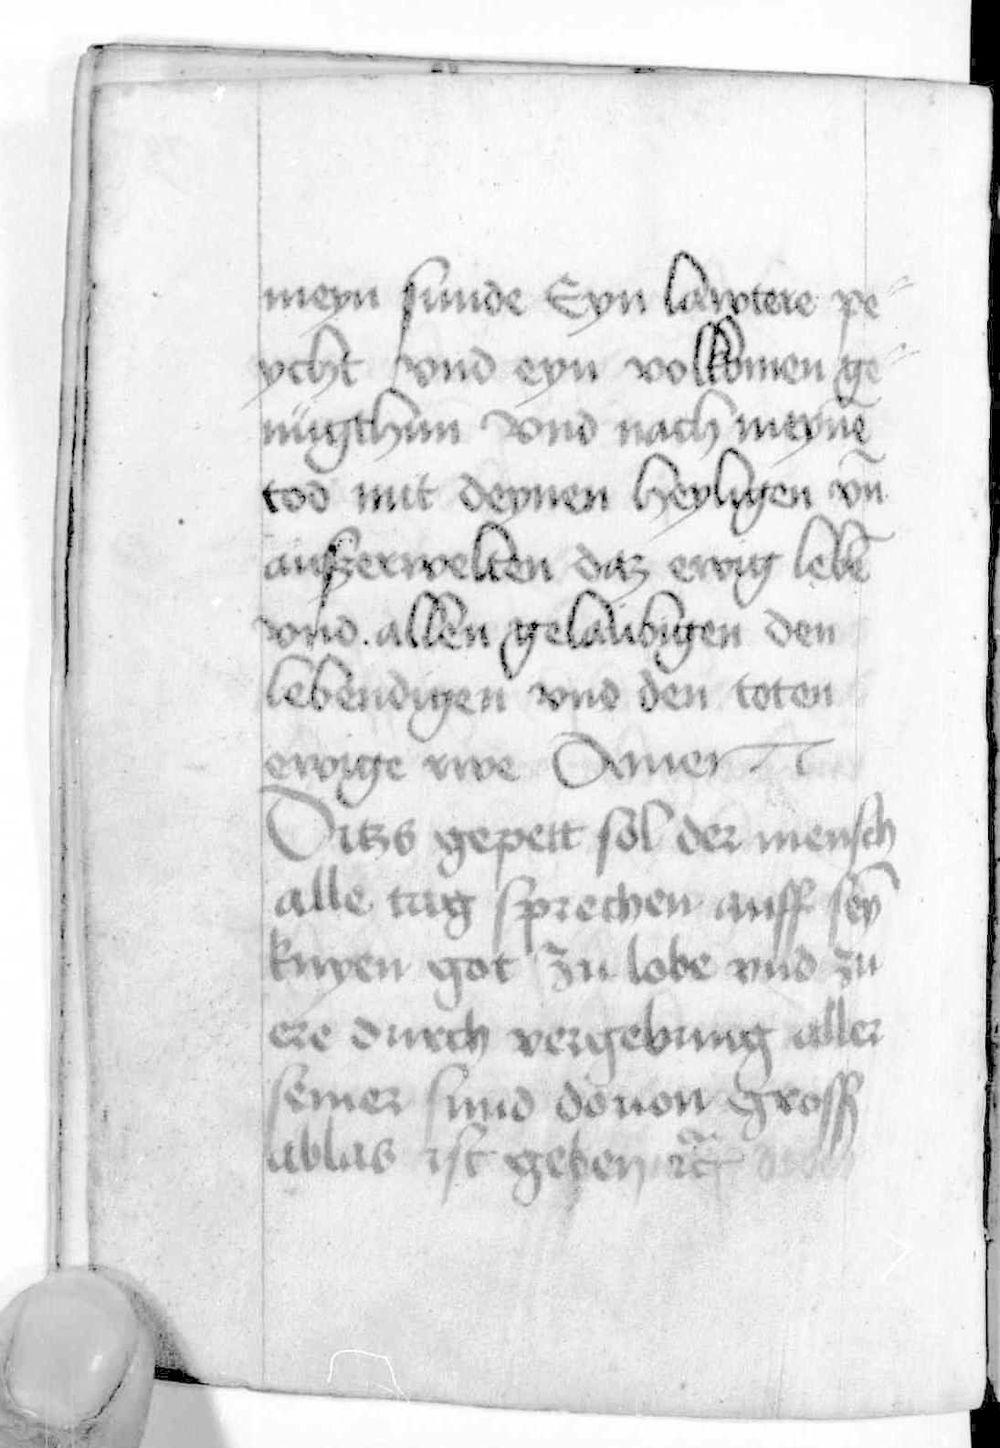 meyn sunde Eyn lawtere pe⸗
ycht vnd eyn volkomen ge⸗
nůgthun vnd nach meynē
tod mit deynen heyligen vn̄
auszerwelten daz ewig lebē
vnd. allen gelaubigen den
lebendigen vnd den toten
ewige rwe Amen
Ditzs gepett sol der mensch
alle tag sprechen auff seȳ
knyen got zu lobe vnd zu
ere durch vergebung aller
seiner sund douon gross
ablas ist geben